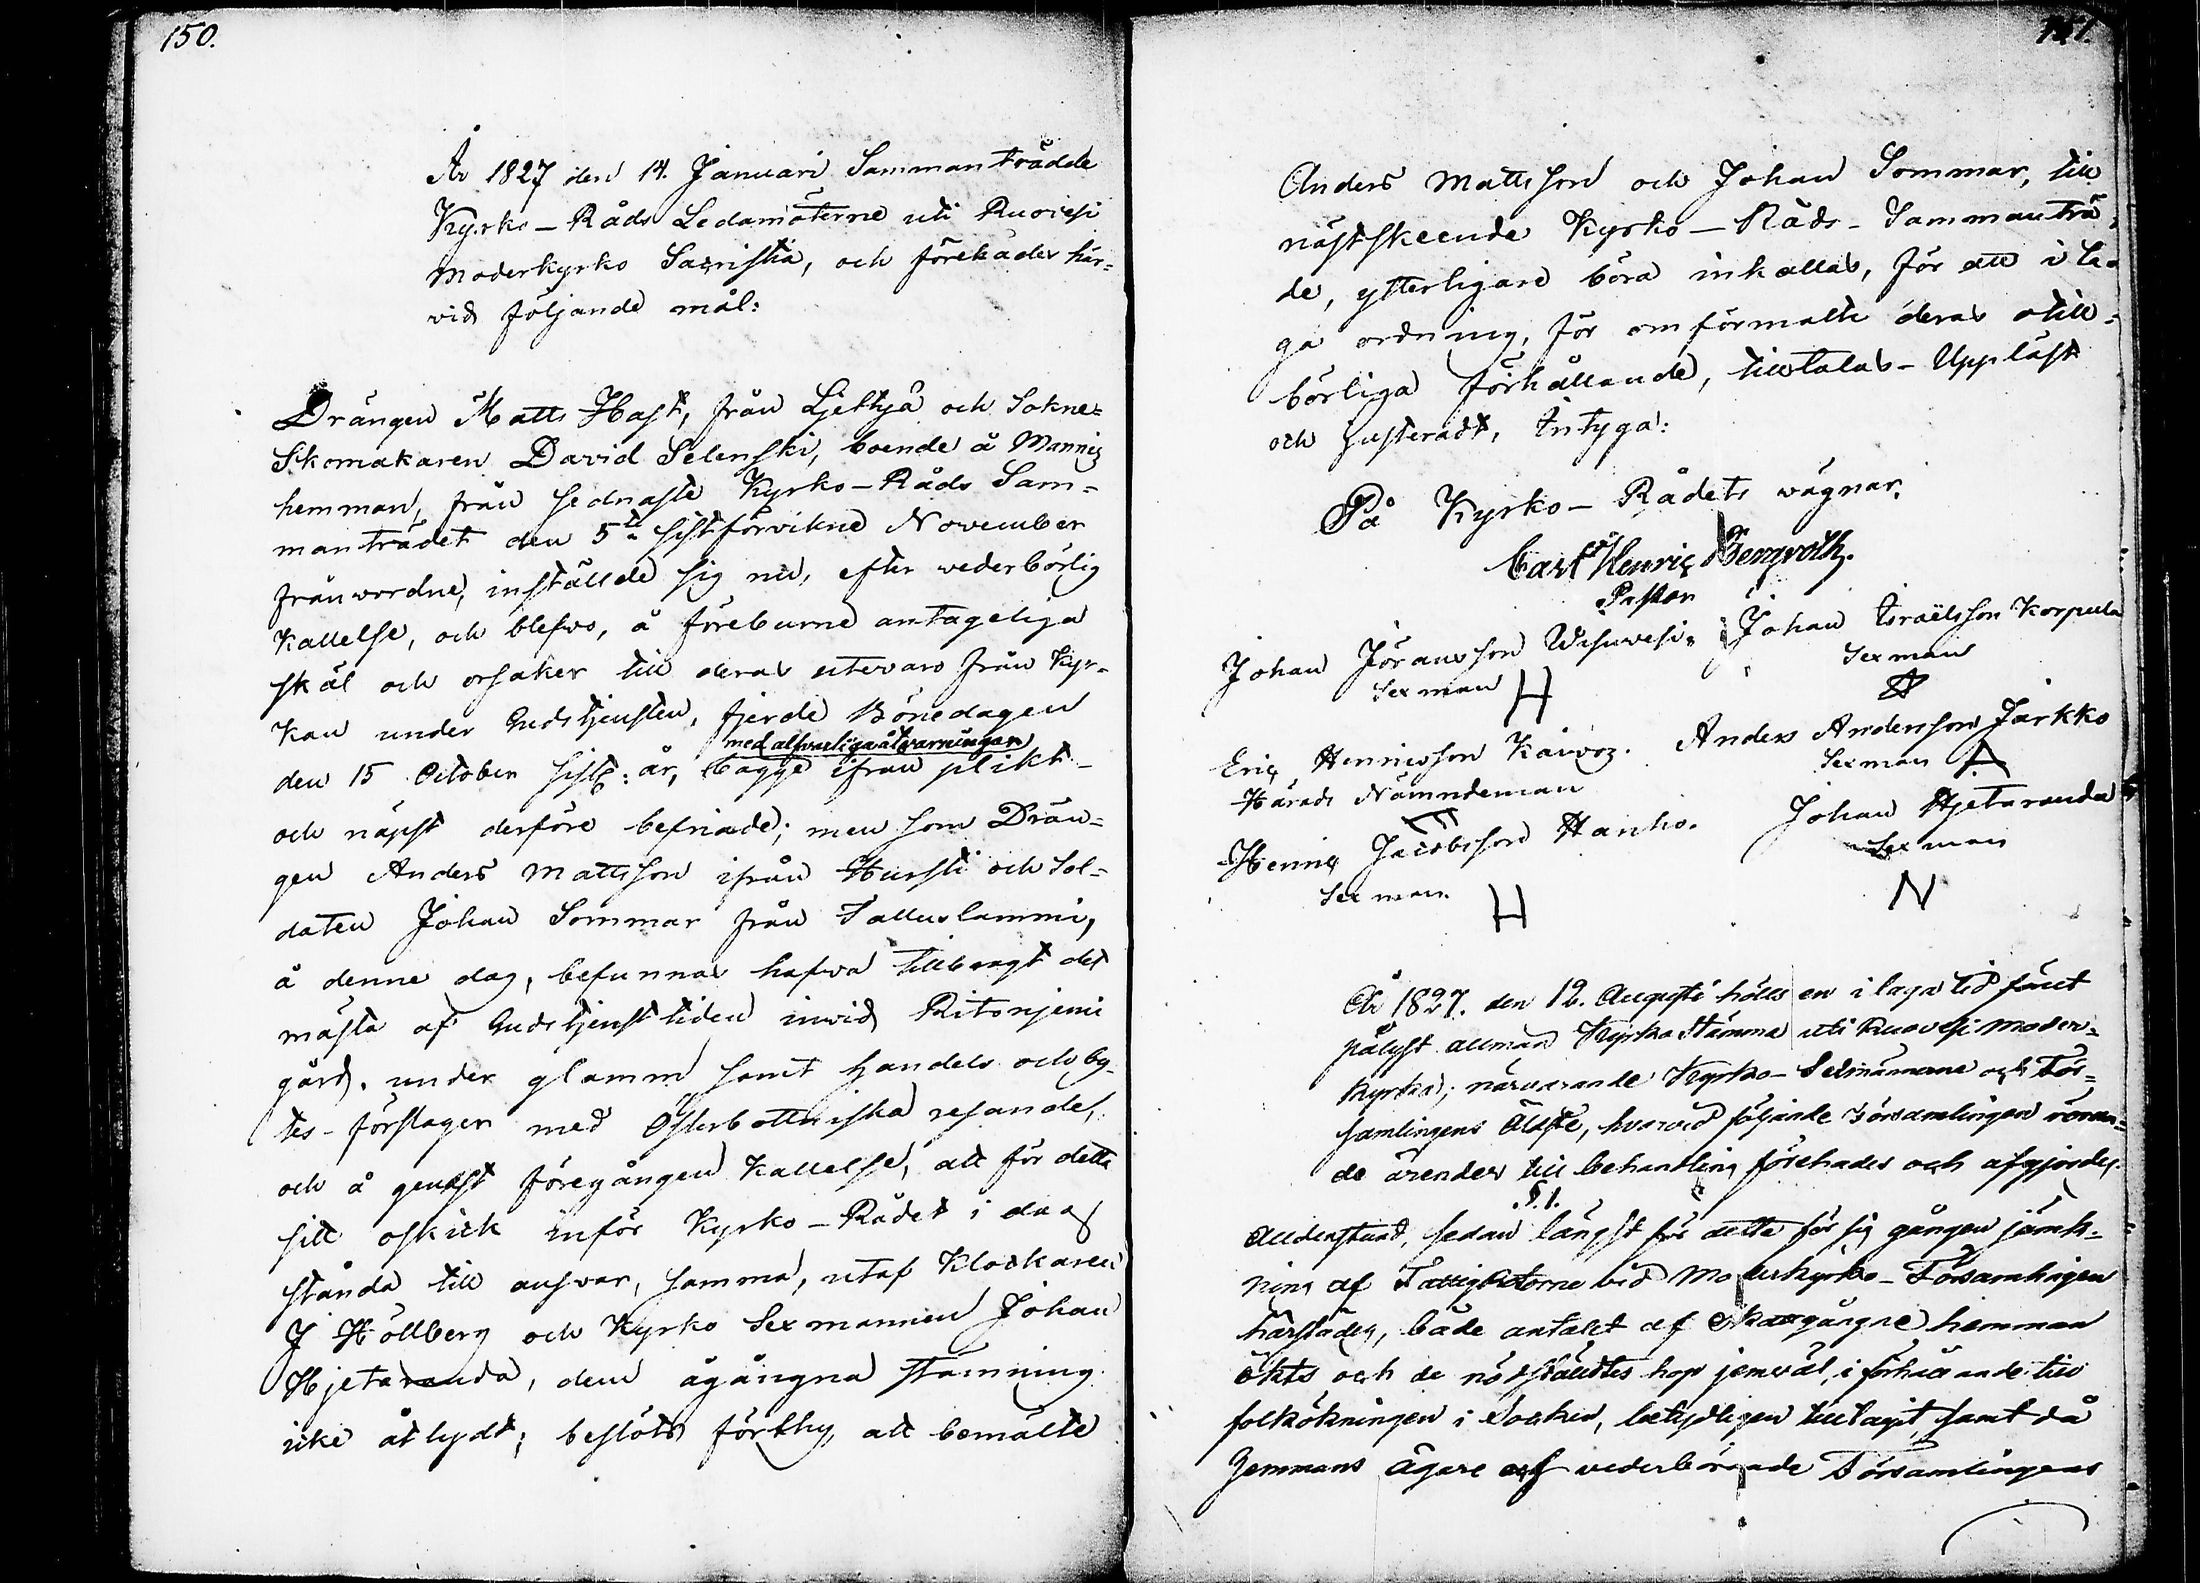 150.
År 1827 den 14. Januari Sammanträdde
Kyrko-Råds Ledamöterne uti Ruovesi
Moderkyrko Sacristia, och förehades här=
vid följande mål:
Drängen Matts Hast, från och Sokne=
Skomakaren David Selenski, boende å Mannis
hemman, från sednaste Kyrko-Råds Sam=
manträdet den 5te sistförvikne November
frånvordne, inställde sig nu, efter vederbörlig
Kallelse, och blefvo, å föreburne antageliga
skäl och orsaker till deras utevaro från Kyr=
kan under Gudstjensten, fjerde Bönedagen
med alfvarliga åtvarningar
den 15 October sistl: år, bägge ifrån plikt-
och näpst derföre befriade; men som Drän=
gen Anders Mattsson ifrån Hursti och Sol=
daten Johan Sommar från Talluslammi,
å denne dag, befunnas hafva tillbragt det
mästa af Gudstjenst tiden invid Ritoniemi
gård, under glamm samt handels och by-
tes-förslager med Österbottniska resande,
och å genast föregången Kallelse, att för detta
sitt oskick inför Kyrko-Rådet i dag
stånda till ansvar, samma, utaf Klockaren
J Höllberg och Kyrko Sexmannen Johan
Hjetaranda, dem ågångna stämning
icke åtlydt; beslöts förthy, att bemälte
151.
Anders Mattsson och Johan Sommar, till
nästskeende Kyrko-Råds-Sammanträ=
de, ytterligare böra inkallas, för att i la=
ga ordning, för omförmälte deras otill=
börliga förhållande, tilltalas - Uppläst
och justeradt, Intyga:
På Kyrko-Rådets vägnar,
Carl Henric Bergroth.
Pastor
Johan Jöransson Johan Israëlsson Korpula
Sexman H Sexman
Eric Henricsson Anders Andersson Järkko
Härads Nämndeman Sexman A
Henric Jacobsson Hanho. Johan Hjetaranda
Sexman. Sexman
H N
År 1827. den 12. Augusti hölls en i laga tid förut
pålyst allmän Kyrko Stämma uti Ruovesi Moder=
kyrka; närvarande Kyrko-Sexmännerne och För=
samlingens Äldste, hvarvid följande Församlingen röran=
de ärender till behandling förehades och afgjordes.
§.1.
Alldenstund, sedan längst för detta för sig gången jämk=
ning af Fattigrotorne vid Moderkyrko-Församlingen
härstädes, både antalet af Skattgångne hemman
ökts och de nödstäldtes hop jemväl, i förhållande till
folkökningen i Socken, betydligen tilltagit, samt då
Hemmans ägare och vederbörande Församlingens